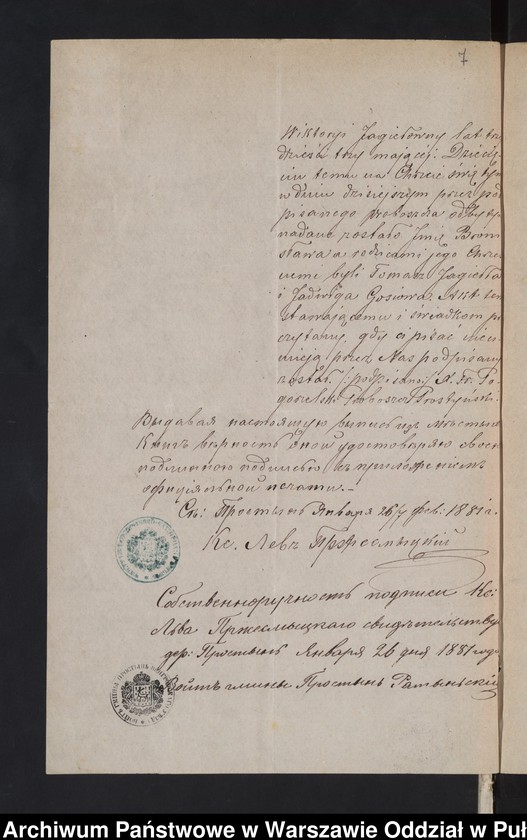 7
Wiktoryi Jagiełówny lat trzy
dzieści trzy mającej. Dziecię
ciu temu na Chrzcie świętym
w dniu dzisiejszym przez pod
pisanego Proboszcza odbytym
nadane zostało Imię Broni
sława a rodzicami jego Chrze
stnemi byli Tomasz Jagiełło
i Jadwiga Gosiowa. Akt ten
stawającemu i świadkom prze
czytany, gdy ci pisać nieu
mieją przez Nas podpisany
został. /:podpisano:/ X. Fr.
Proboszcz Prostyński.
Выдавая настоящую выпись изъ мѣстныхъ
Книгъ вѣрность оной удостовѣряю своею
подлинною подписью съ приложеніемъ
оффиціальной печати.–
Съ: Простынь Января 26/7 фев: 1881 г.
Кс. Левъ Пржесмыцкій
Собственноручность подписи Кс:
Льва Пржесмыцкаго свидѣтельствую
дер: Простынь Января 26 дня 1881 года
Войтъ гмины Простынь
Archiwum Państwowe w Warszawie Oddział w Puł